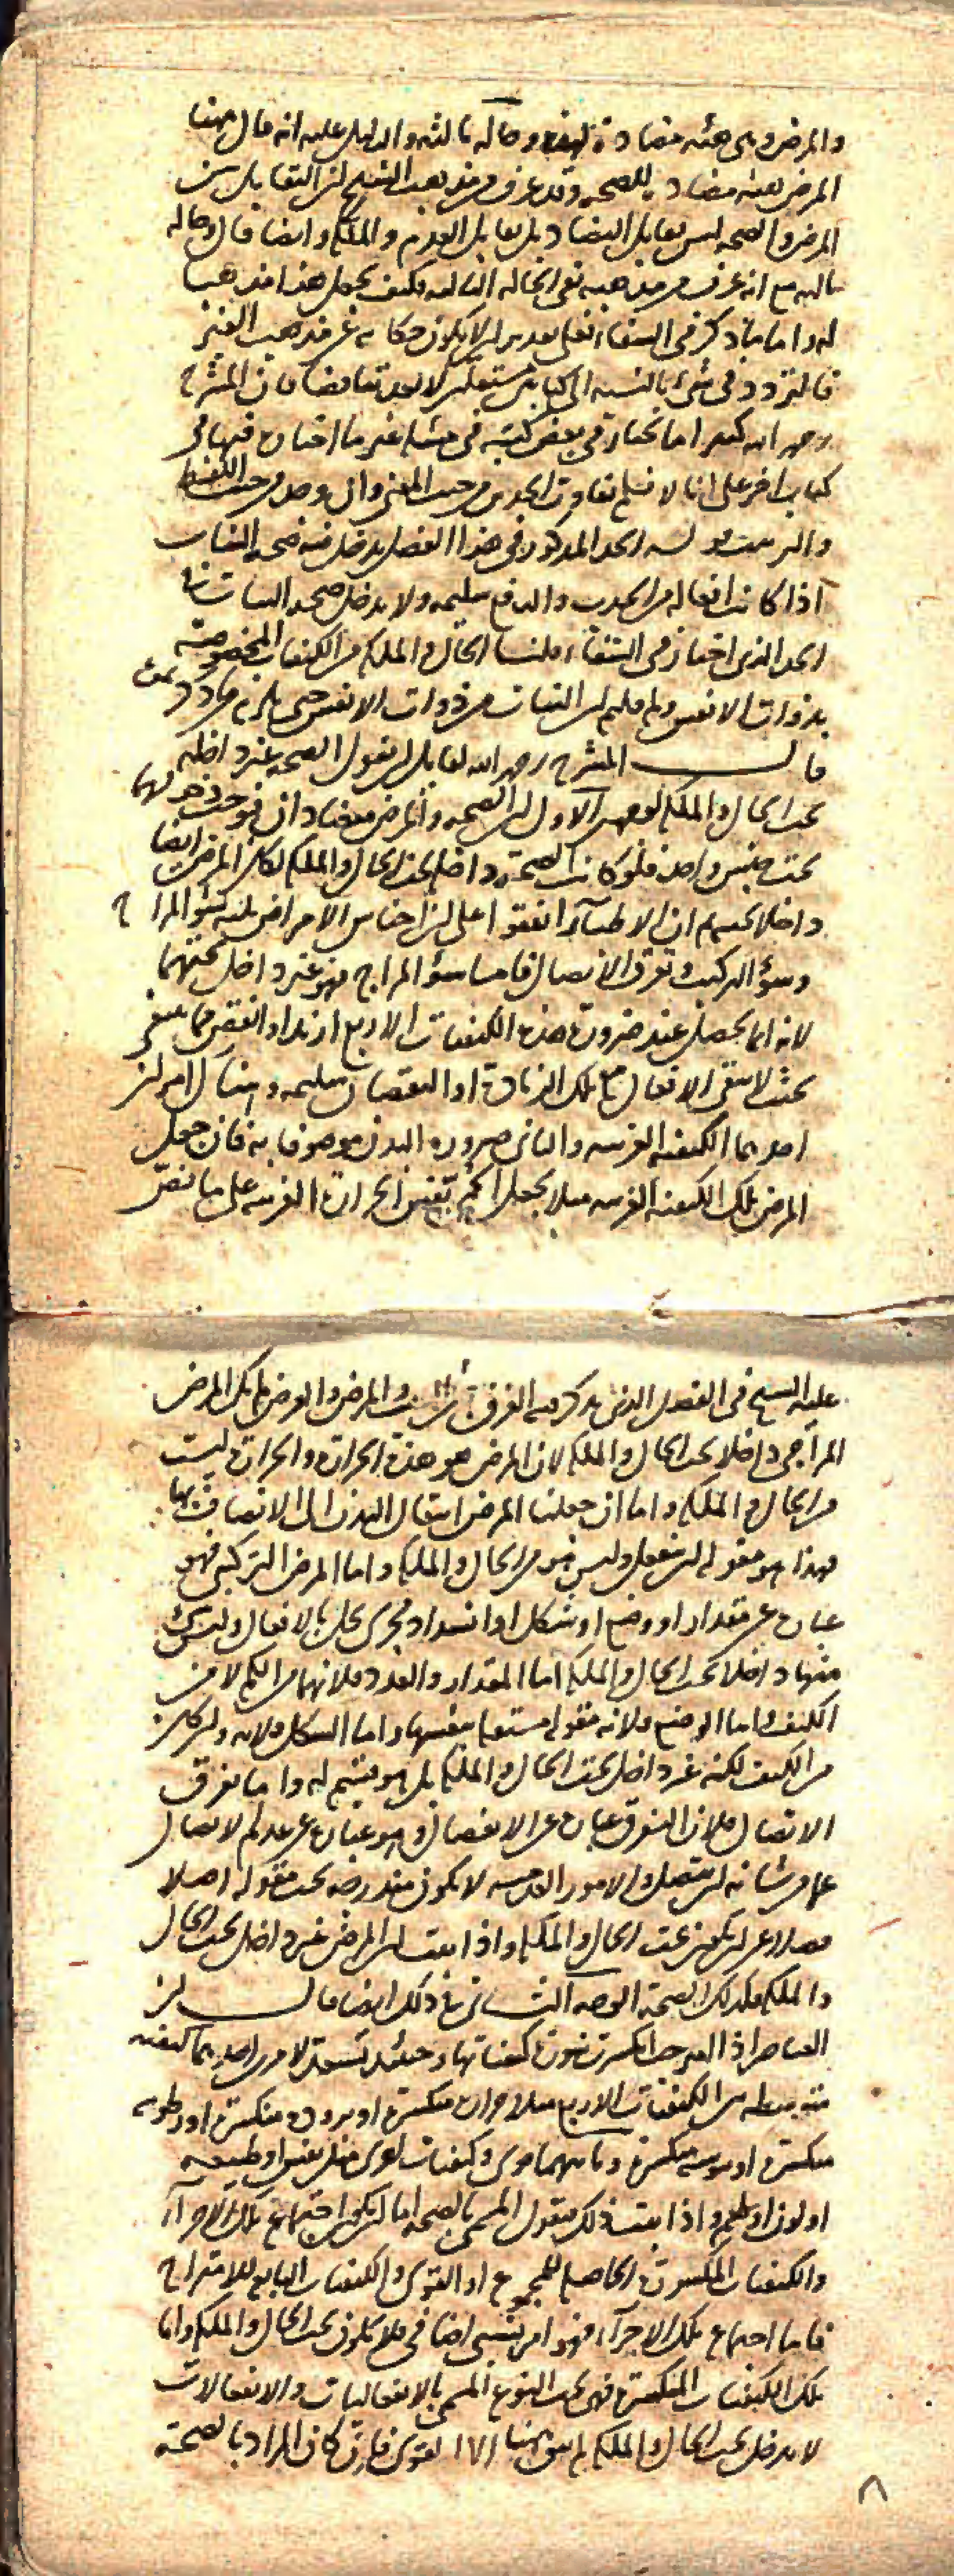 والمرض وهى هيئه مضادة لهذه وحاله ثالثه والدليل عليه انه قال ههنا
المرض هيئه مضادة للصحه وقد عرف من مذهب الشيخ ان التقابل بين
المرض والصحه ليس تقابل التضاد بل تقابل العدم والملكه وايضا قال وحاله
ثالثه مع انه عرف من مذهبه نفى الحاله الثالثه فكيف يجعل هذا مذهبا
له واما ما ذكر فى الشفاء فعلى تقدير ان لا يكون حكايه عن مذهب الغير
فالتردد فى شئ بالنسبه الى كتابين مستقلين لا يعد تناقضا فان المشرح
رحمه الله كثيرا ما يختار فى بعض كتبه فى مسئله غير ما اختاره فيها فى
كتاب اخر على انا لا نسلم تفاوت الحدين من حيث المعنى وان وجد من حيث اللفظ
الحد المذكور فى هذا الفصل يدخل فيه صحه النبات
اذا كانت افعاله من الجذب والدفع سليمه ولا يدخل صحه النبات فى
الحد الذى اختاره فى الشفاء قلنا الحال والملكه من الكيفيات المخصوصة
بذوات الانفس ولم قلتم ان النبات من ذوات الانفس حتى يلزم ما ذكرتم
قال المشرح رحمه الله لقائل ان يقول الصحه غير داخله
تحت الحال والملكه لوجهين الاول ان الصحه والمرض متضادان فوجب دخولهما
تحت جنس واحد فلو كانت الصحة داخله تحت الحال والملكه لكان المرض ايضا
داخلا تحتهما ان الاطباء اتفقوا على ان اجناس الامراض ثلثه سؤ المزاج
وسؤ التركيب وتفرق الاتصال فاما سؤ المزاج فهو غير داخل تحتهما
لانه انما يحصل عند صيرورة هذه الكيفيات الاربع ازيد او انقص مما ينبغى
بحيث لا يبقى الافعال مع تلك الزيادة او النقصان سليمه وهناك امران
احدهما الكيفيه الغريبه والثانى صيروره البدن موصوفا به فان جعل
المرض تلك الكيفيه الغريبه مثلا يجعل الحمى نفس الحرارة الغريبه على ما نص
عليه الشيخ فى الفصل الذى يذكر فيه الفرق بين المرض والعرض لم يكن المرض
المزاجى داخلا تحت الحال والملكه لان المرض هو هذه الحرارة والحرارة ليست
من الحال والملكه واما ان جعلنا المرض انتقال البدن الى الاتصاف بها
فهذا هو مقوله ان ينفعل وليس هو من الحال والملكه واما المرض التركيبى فهو
عباره عن مقدار او وضع او شكل او انسداد مجرى يخل بالافعال وليس شئ
منها داخلا تحت الحال والملكه اما المقدار والعدد فلانهما من الكم لا من
الكيف واما الوضع فلانه مقوله مستقله بنفسها واما الشكل فلانه وان كان
من الكيف لكنه غير داخل تحت الحال والملكه بل هو قسيم له واما تفرق
الاتصال فلان التفرق عباره عن الانفصال وهو عباره عن عدم الاتصال
عما من شانه ان يتصل والامور العدميه لا تكون مندرجه تحت مقوله اصلا
فضلا عن ان يكون تحت الحال والملكه واذا ثبت ان المرض غير داخل تحت الحال
والملكه فكذلك الصحة الوجه الثانى فى ذلك ايضا قال ان
العناصر اذا امتزجت انكسرت سورة كيفياتها وحينئذ تستعد لامرين احدهما كيفيه
متوسطه من الكيفيات الاربع مثلا حرارة منكسرة او برودة منكسرة او رطوبه
منكسرة او يبوسه منكسرة وثانيهما قوى وكيفيات اخرى مثل نفس او طبيعه
او لون او طعم واذا ثبت ذلك فنقول المسمى بالصحه اما ان يكون اجتماع تلك الاجزاء
والكيفيات المنكسرة الحاصله للمجموع او القوى والكيفيات التابعه للامتزاج
فاما اجتماع تلك الاجزاء فهو امر نسبى اضافى فلا يكون تحت الحال والملكه واما
تلك الكيفيات المنكسرة فهى تحت النوع المسمى بالانفعاليات والانفعالات
لا يدخل تحت الحال والملكه لم يبق ههنا الا القوى فان كان المراد بالصحة
٨